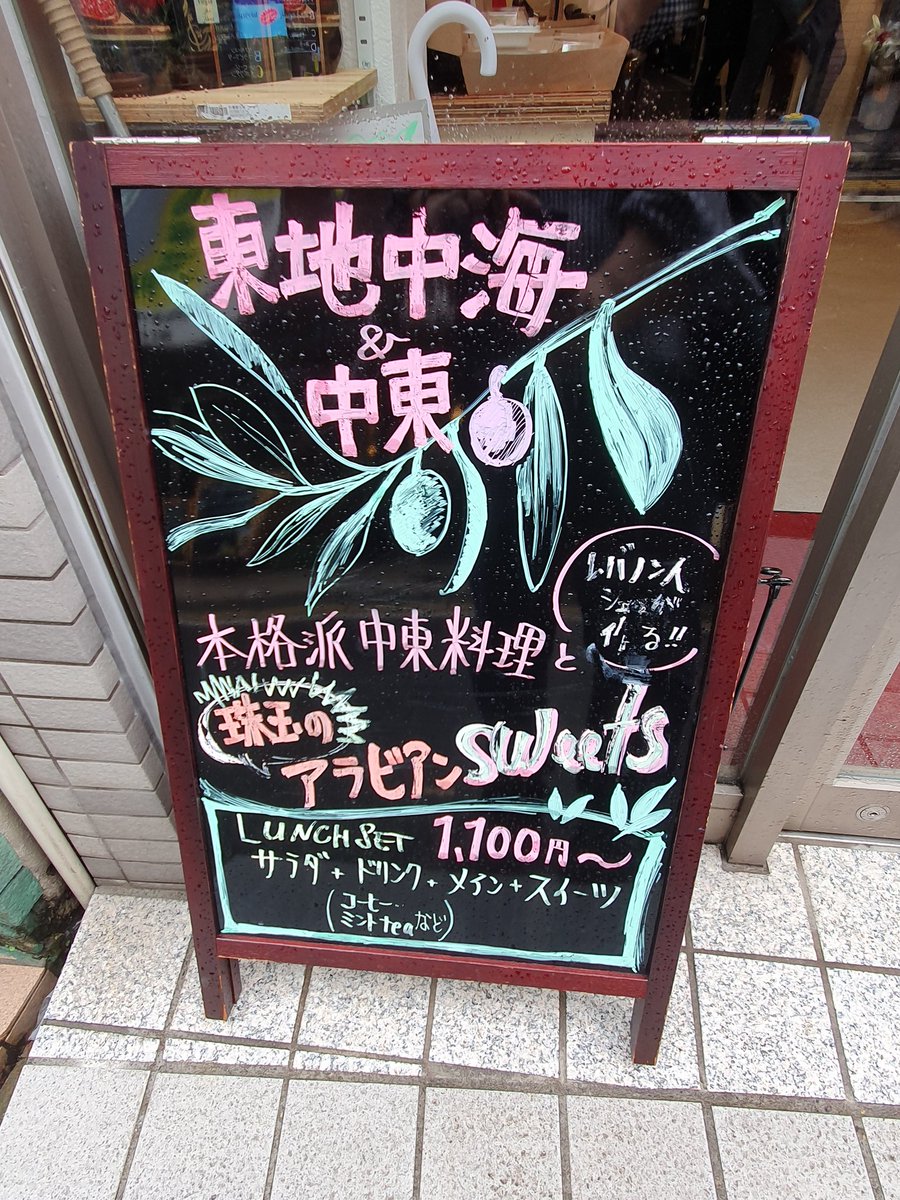 東地中海
&
中東
レバノン人
シェフが
作る!!
本格派中東料理と
珠玉の
アラビアン sweets
LUNCH SET 1,100円～
サラダ+ドリンク+メイン+スイーツ
(コーヒー..
ミントteaなど)